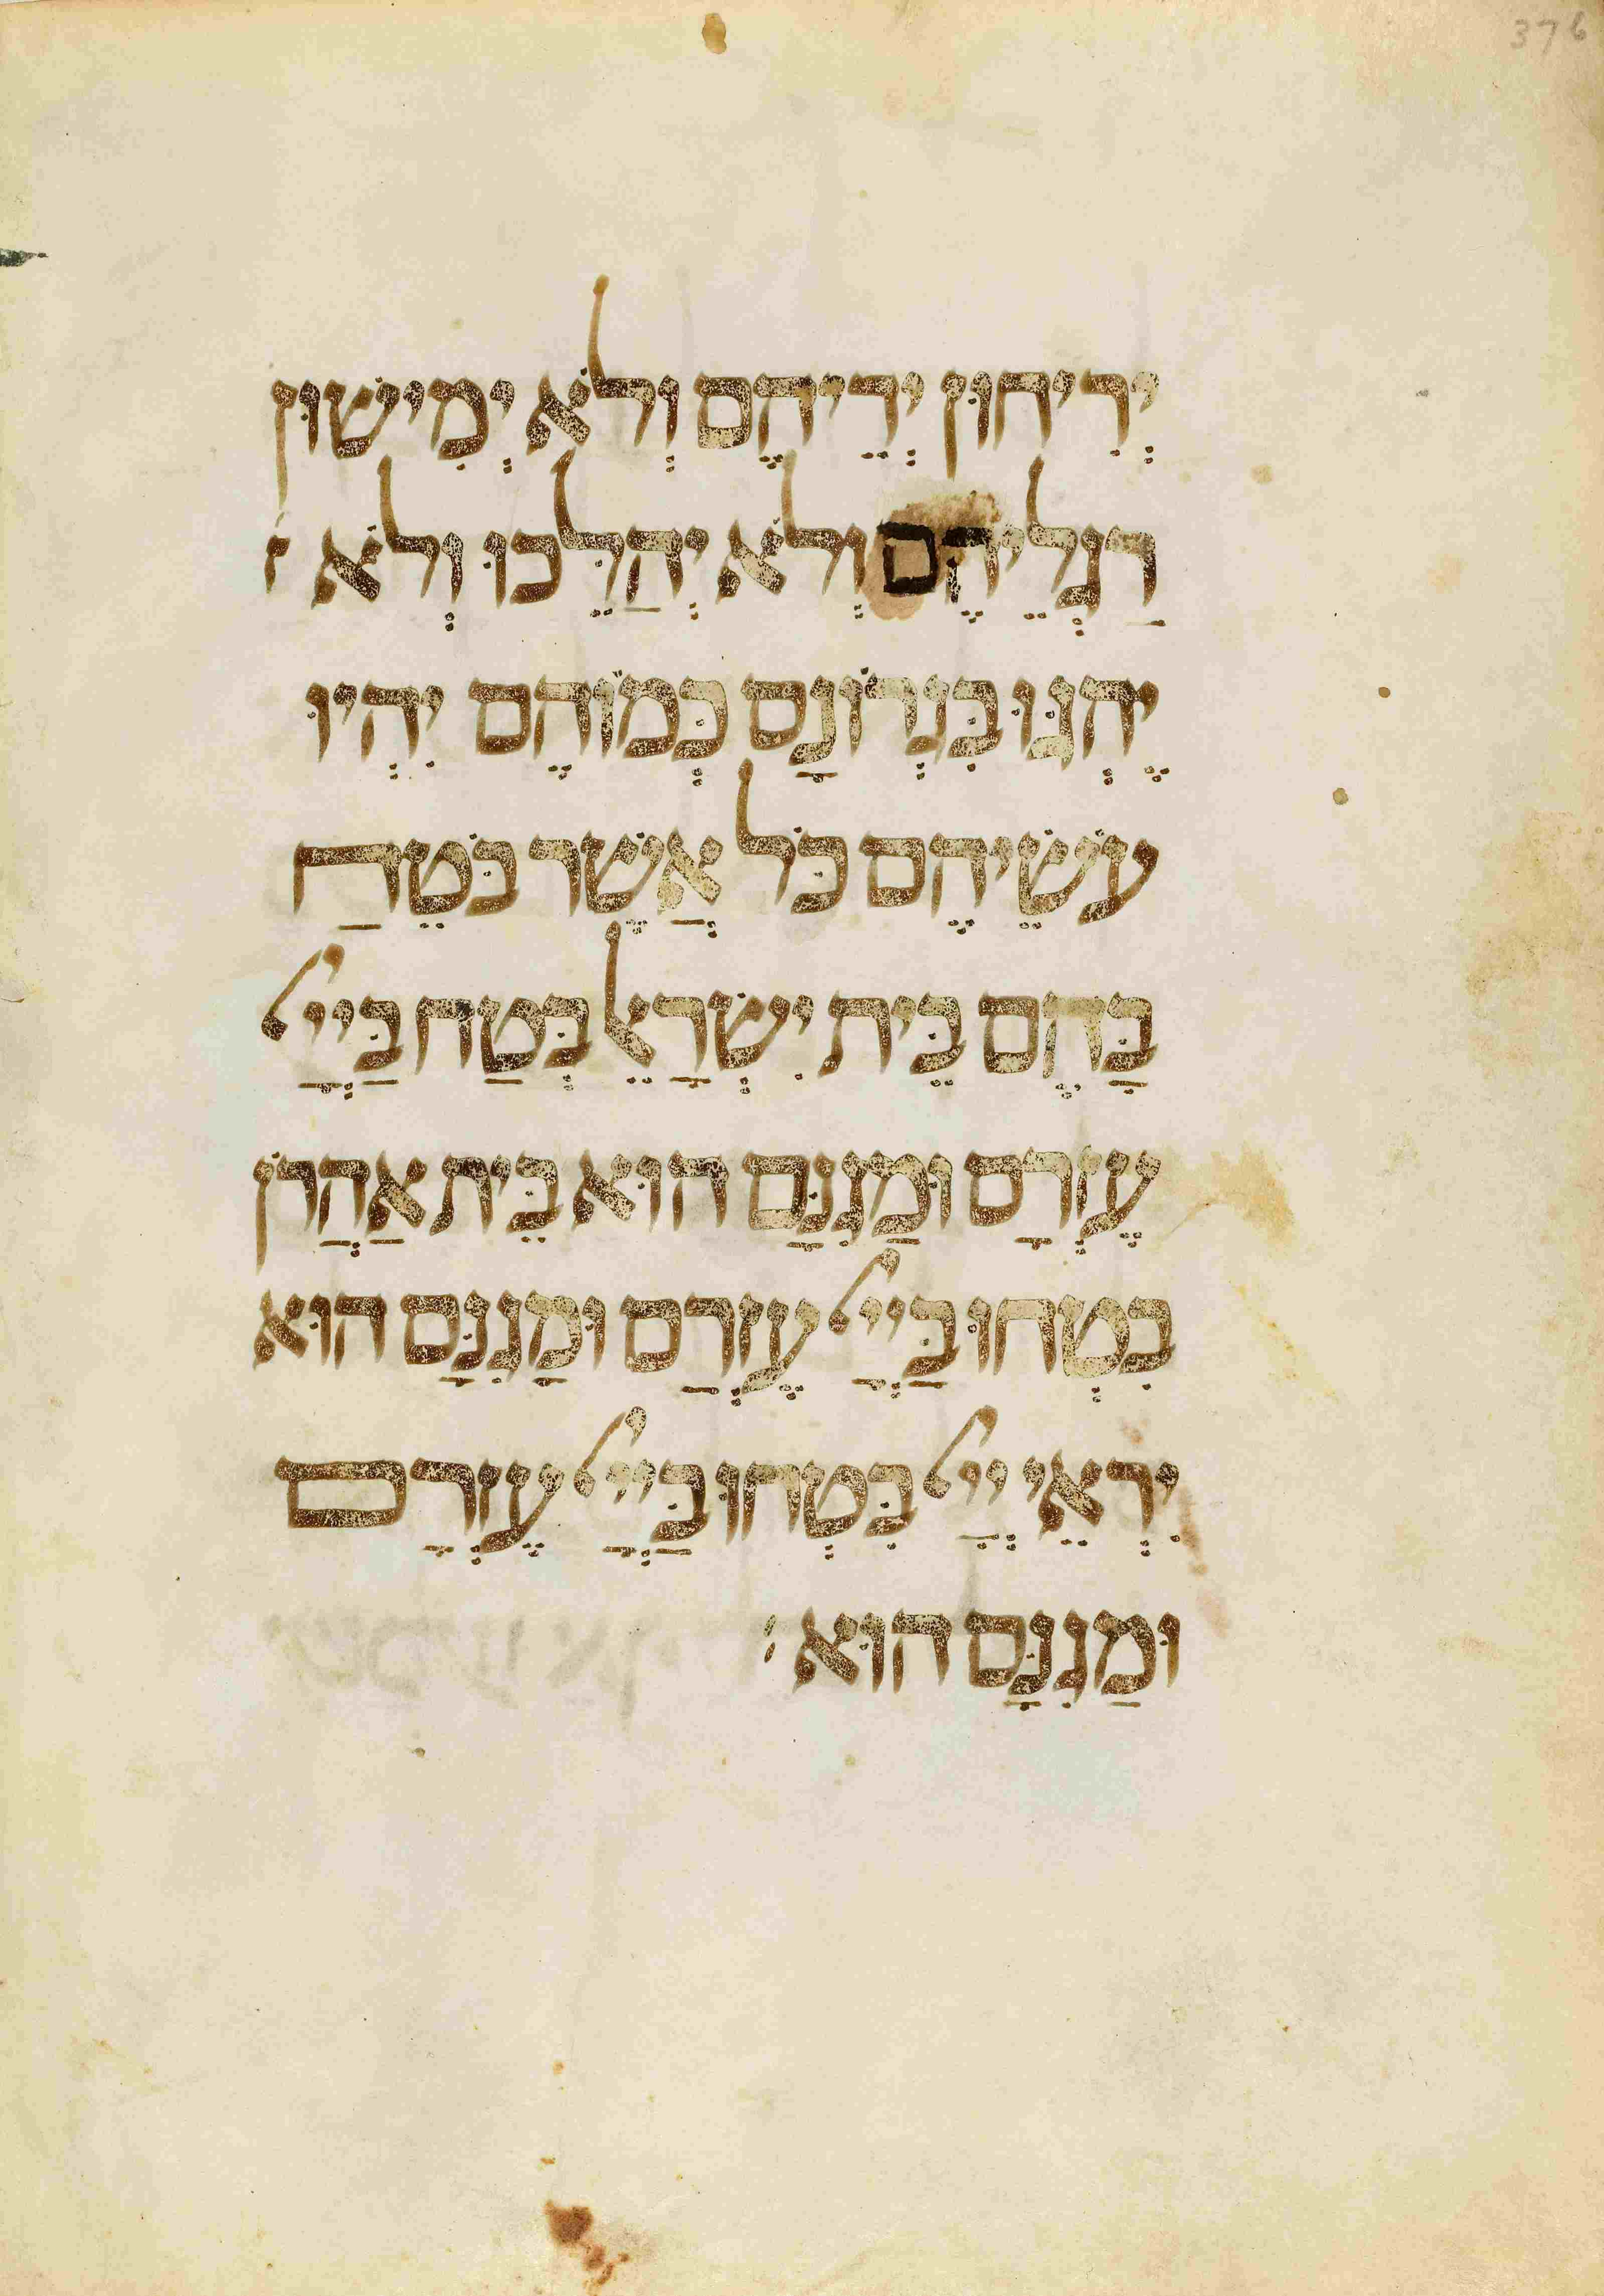 376
יְרִיחוּן יְדֵיהֶם וְלֹא יְמִישׁוּן
רַגְלֵיהֶם וְלֹא יְהַלֵּכוּ וְלֹא י
יֶהְגּוּ בִּגְרוֹנָם כְּמוֹהֶם יִהְיוּ
עֹשֵׂיהֶם כֹּל אֲשֶׁר בֹּטֵחַ
בָּהֶם בֵּית יִשְׂרָאֵל בְּטַח בַּייָ
עֶזְרָם וּמָגִנָּם הוּא בֵּית אַהֲרֹן
בִּטְחוּ בַּייָ עֶזְרָם וּמָגִנָּם הוּא
יִרְאֵי ייָ בִּטְחוּ בַּייָ עֶזְרָם
וּמַגִנָּם הוּא